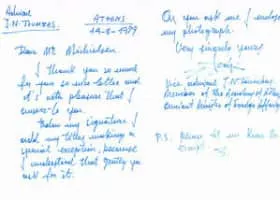 Admiral
J.N. Toumbas
ATHENS
24-8-1979
Dear Mr Michielsen
I thank you so much
for your so nice letter and
it's with pleasure that I
answer to you
Below my signature I
add my titles making a
special exception, because
I understand that gently you
ask for it.
As you ask me I enclose
my photograph.
Very sincerely yours
Vice Admiral J N Toumbas
Member of the Academy of Athens
Minister of Foreign Affairs
P.S. Please let me know